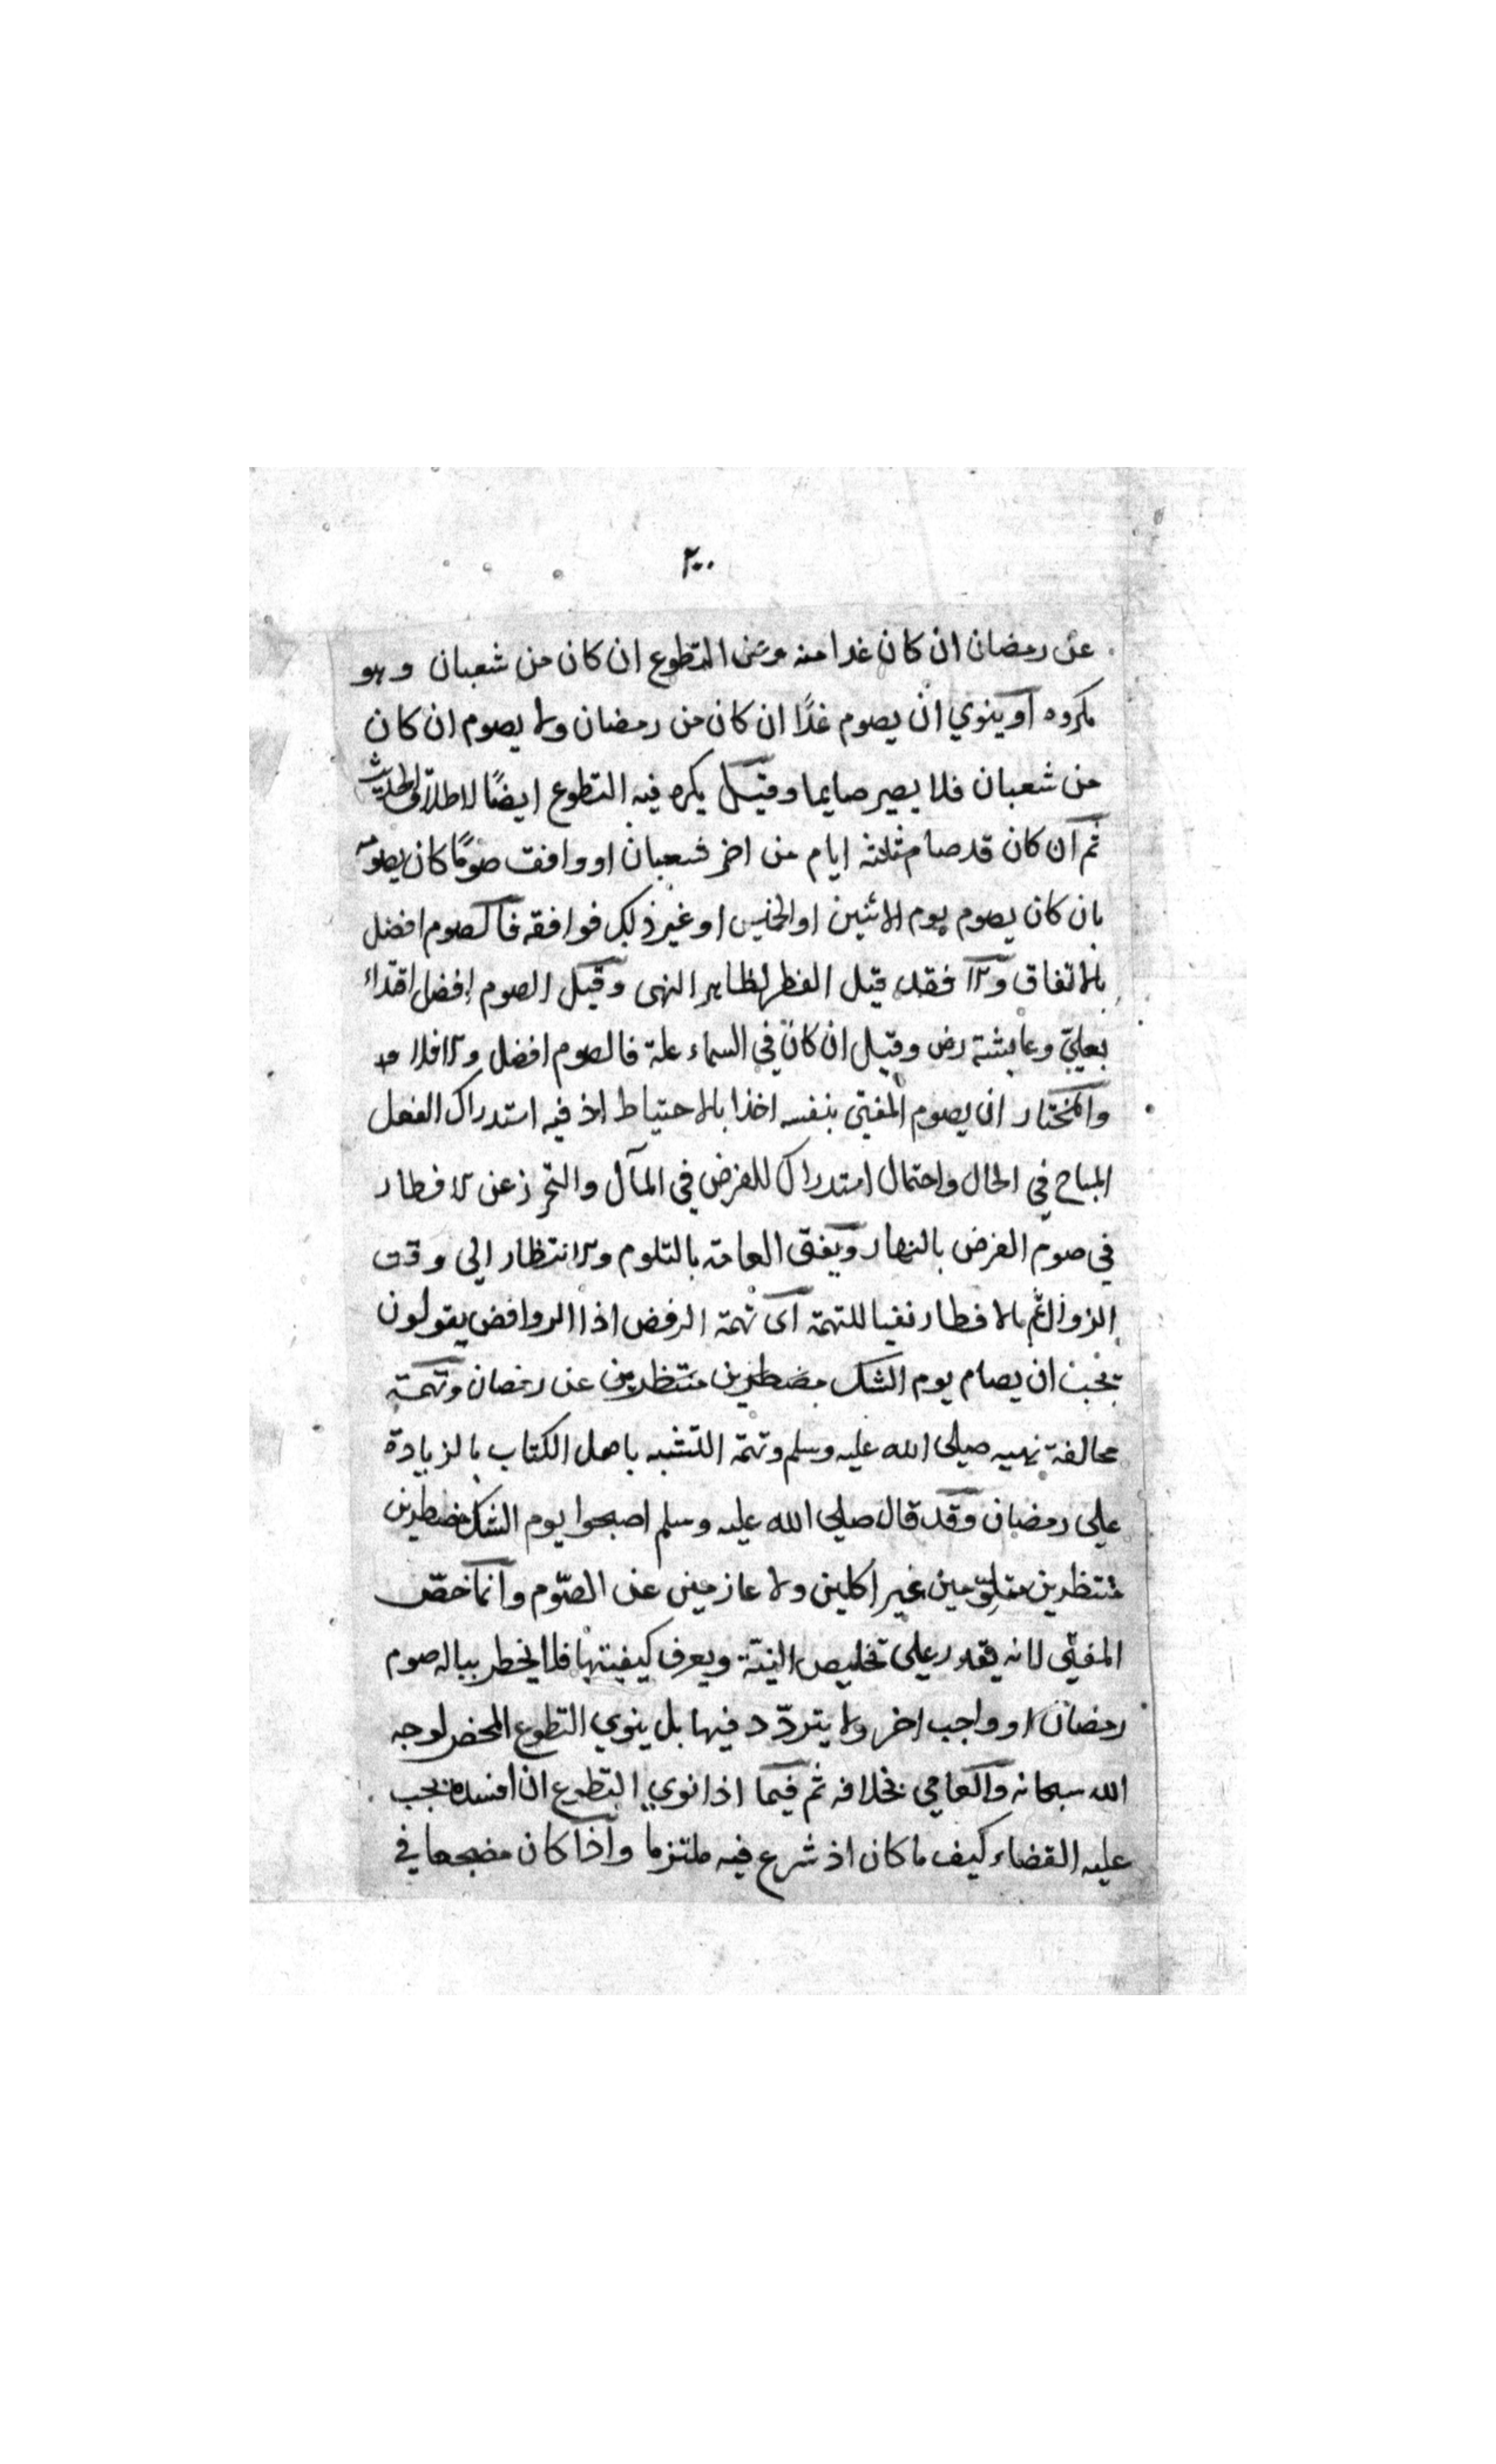 ٢٠٠
عن رمضان ان كان غدا منه وعن التطوع ان كان من شعبان وهو
مكروه او ينوي ان يصوم غدًا ان كان من رمضان ولا يصوم ان كان
من شعبان فلا يصير صايما وقيل يكره فيه التطوع ايضًا لاطلاق الحديث
ثم ان كان قد صام ثلثة ايام من اخر شعبان او وافق صومًا كان يصومه
بان كان يصوم يوم الاثنين او الخميس او غير ذلك فوافقه فالصوم افضل
بالاتفاق والا فقد قيل الفطر لظاهر النهى وقيل الصوم افضل اقتداء
بعليّ وعايشة رض وقيل ان كان في السماء علة فالصوم افضل والا فلا
والمختار ان يصوم المفتى بنفسه اخذا بالاحتياط اذ فيه استدراك الفعل
المباح في الحال واحتمال استدراك للفرض في المآل والتحرز عن الافطار
في صوم الفرض بالنهار ويفتى العامة بالتلوم والانتظار الى وقت
الزوال ثم بالافطار نفيا للتهمة اى تهمة الرفض اذا الروافض يقولون
يجب ان يصام يوم الشك مفطرين منتظرين عن رمضان وتهمة
مخالفة نهيه صلى الله عليه وسلم وتهمة التشبه باهل الكتاب بالزيادة
على رمضان وقد قال صلى الله عليه وسلم اصبحوا يوم الشك مفطرين
منتظرين متلوّمين غير اكلين ولا عازمين على الصّوم وانما خصّ
المفتى لانه يقدر على تخليص النيّة ويعرف كيفيتها فلا يخطر بباله صوم
رمضان او واجب اخر ولا يتردّد فيها بل ينوي التطوع المحض لوجه
الله سبحانه والعامي بخلافه ثم فيما اذا نوي التطوع ان افسده يجب
عليه القضاء كيف ما كان اذ شرع فيه ملتزما واذا كان مضجعا في